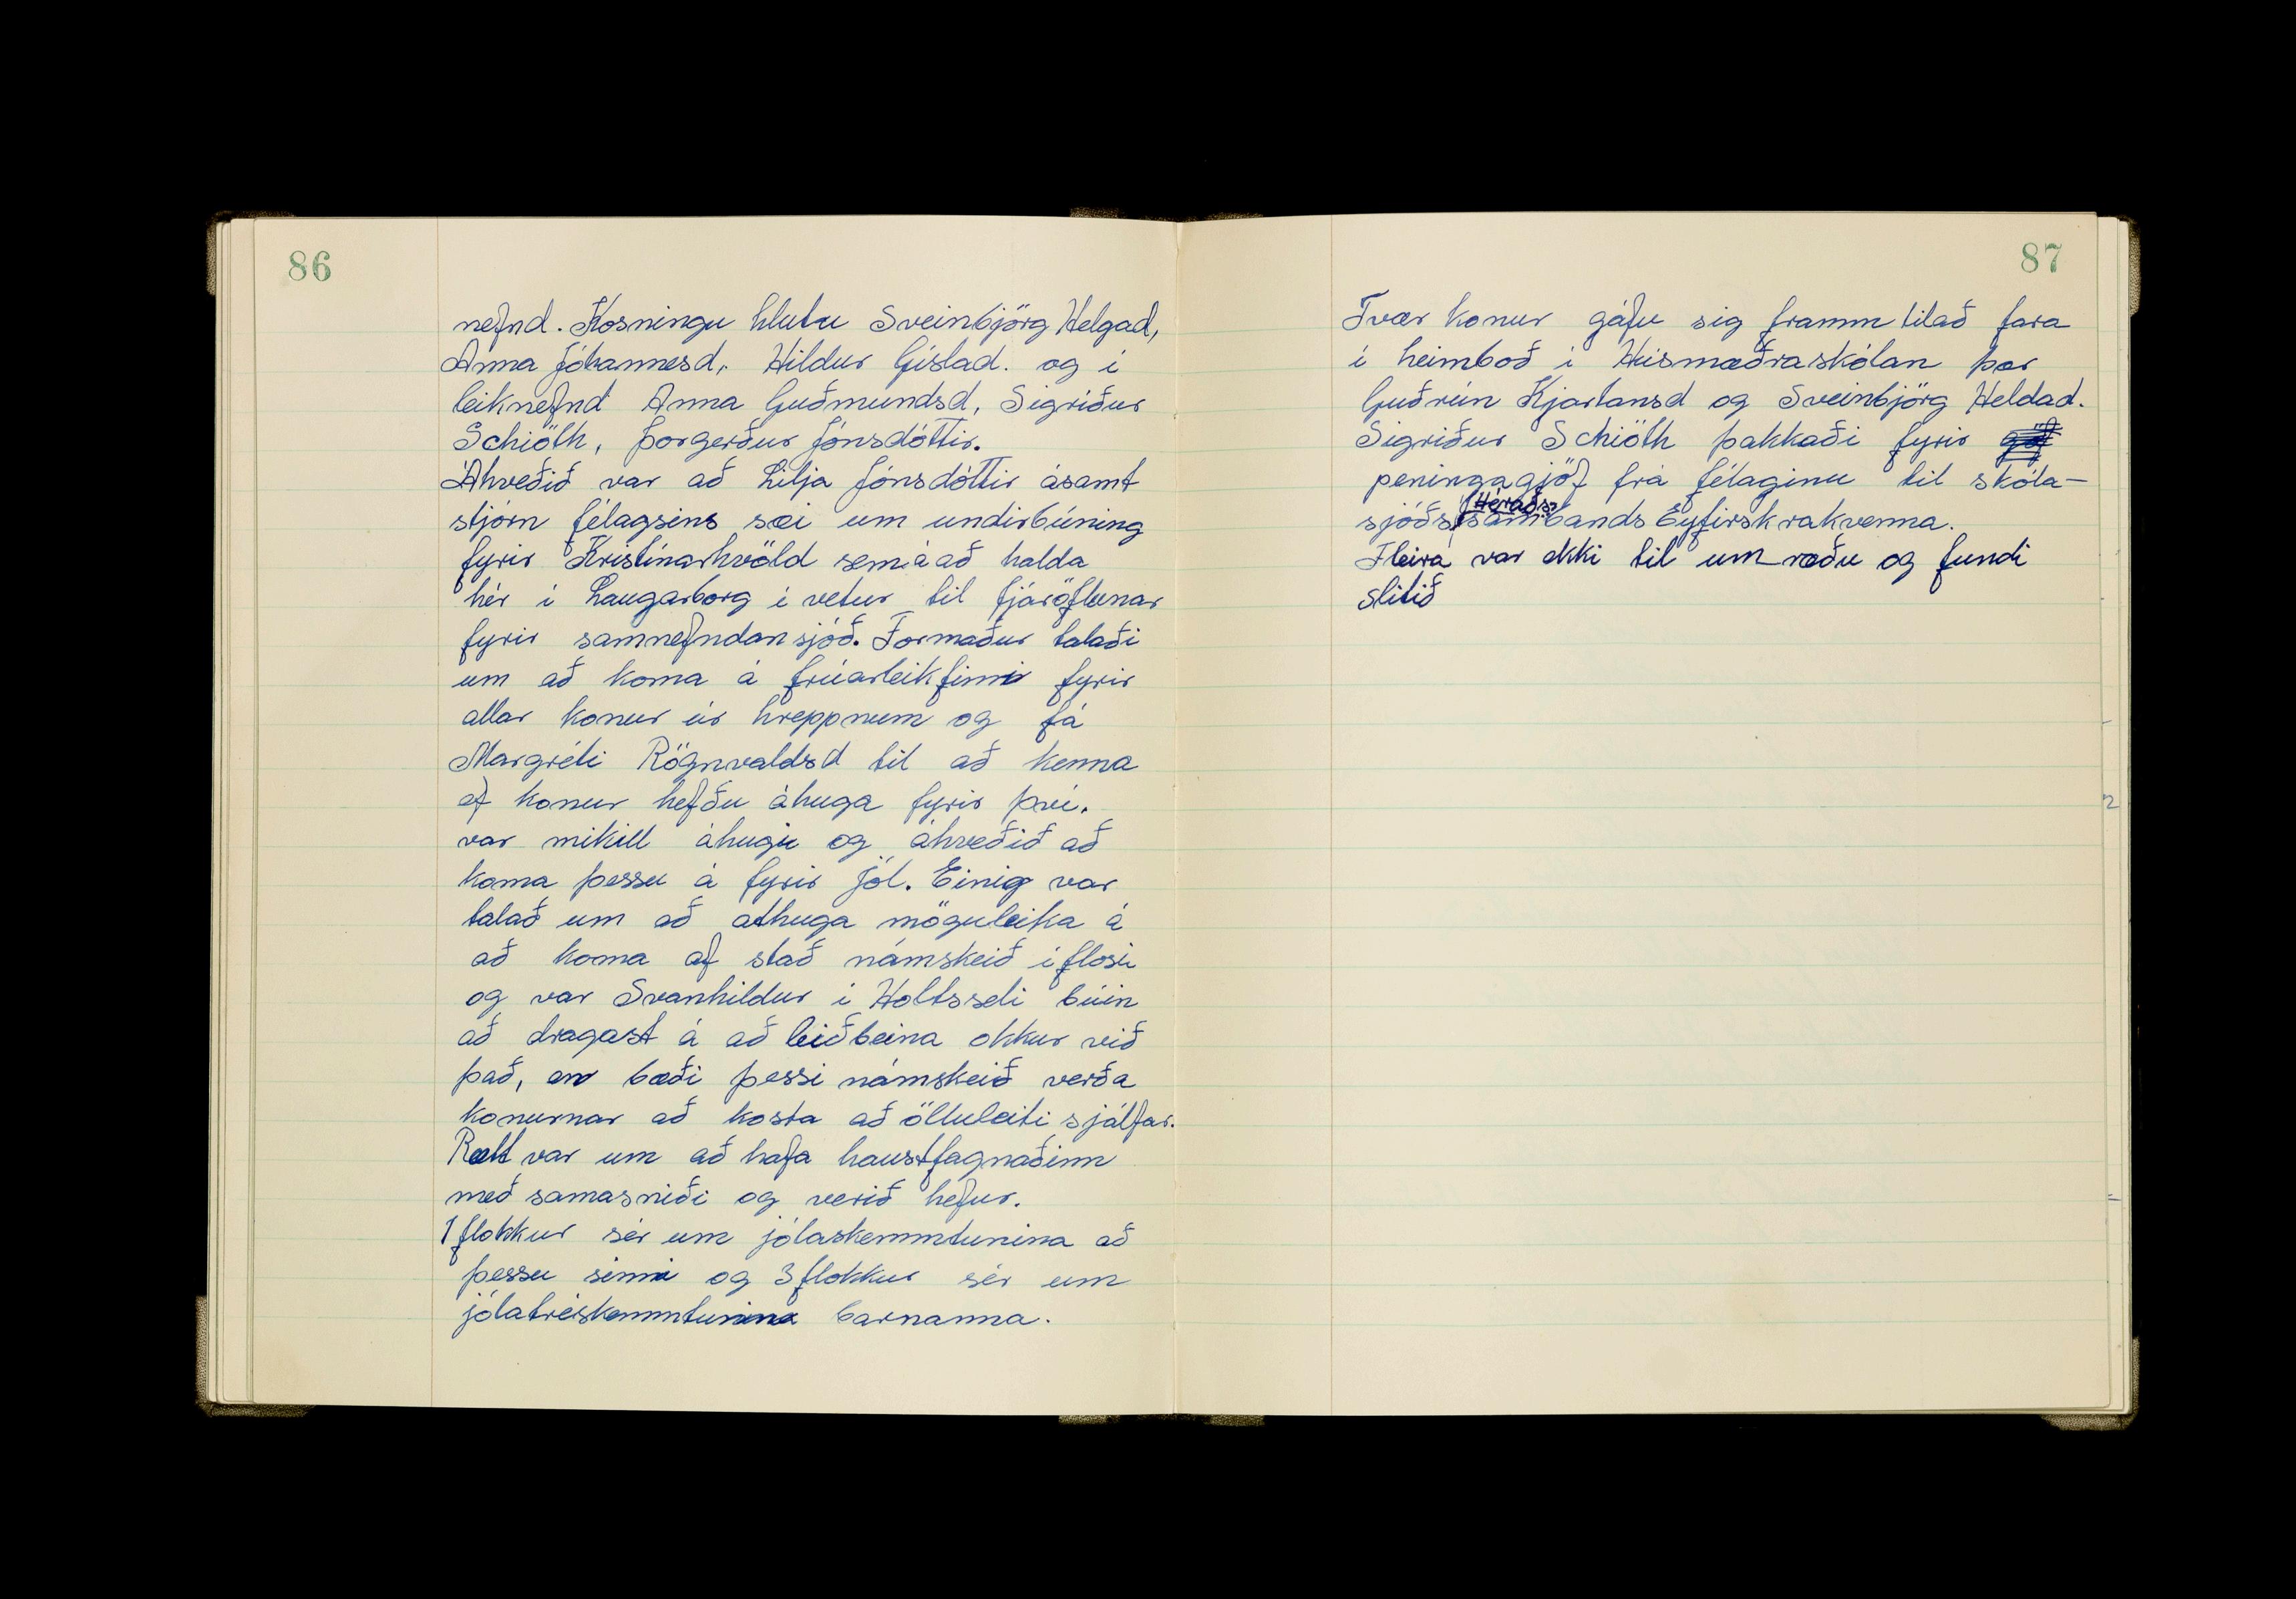 86
nefnd. Kosningu hlutu Sveinbjörg Helgad,
Anna Jóhannesd, Hildur Gíslad. og í
leiknefnd Anna Guðmundsd, Sigríður
Schiöth, Þorgerður Jónsdóttir.
Ákveðið var að Lilja Jónsdóttir ásamt
stjórn félagsins sæi um undirbúning
fyrir Kristínarkvöld sem á að halda
hér í Laugarborg í vetur til fjáröflunar
fyrir samnefndan sjóð. Formaður talaði
um að koma á frúarleikfimi fyrir
allar konur úr hreppnum og fá
Margréti Rögnvaldsd til að kenna
ef konur hefðu áhuga fyrir því.
var mikill áhugi og ákveðið að
koma þessu á fyrir jól. Einig var
talað um að athuga möguleika á
að koma af stað námskeið í flosi
og var Svanhildur í Holtsseli búin
að dragast á að leiðbeina okkur við
það, en bæði þessi námskeið verða
konurnar að kosta að ölluleiti sjálfar.
Rætt var um að hafa haustfagnaðinn
með samasniði og verið hefur.
1 flokkur sér um jólaskemmtunina að
þessu sinni og 3 flokkur sér um
jólatréskemmtunina barnanna.
87
Tvær konur gáfu sig framm tilað fara
í heimboð í Húsmæðraskólan þær
Guðrún Kjartansd og Sveinbjörg Heldad.
Sigríður Schiöth þakkaði fyrir
peningagjöf frá félaginu til skóla-
Héraðs
sjóðs sambands Eyfirskrakvenna.
Fleira var ekki til um ræðu og fundi
slitið